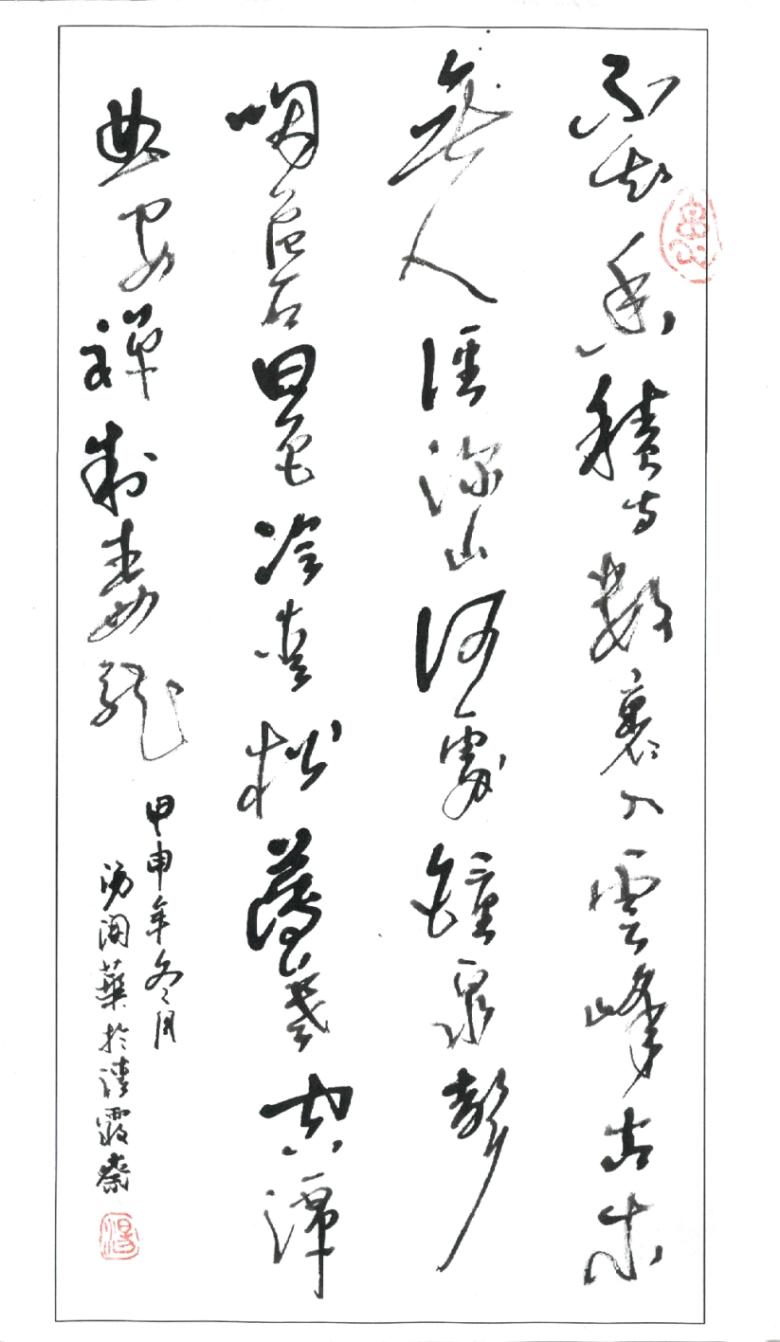 不知香積寺數裏入雲峰古木
無人徑深山何處鐘泉聲
咽危石日色冷青松薄暮空潭
曲安禪制毒龍
甲申年冬月
湯華於霞齋